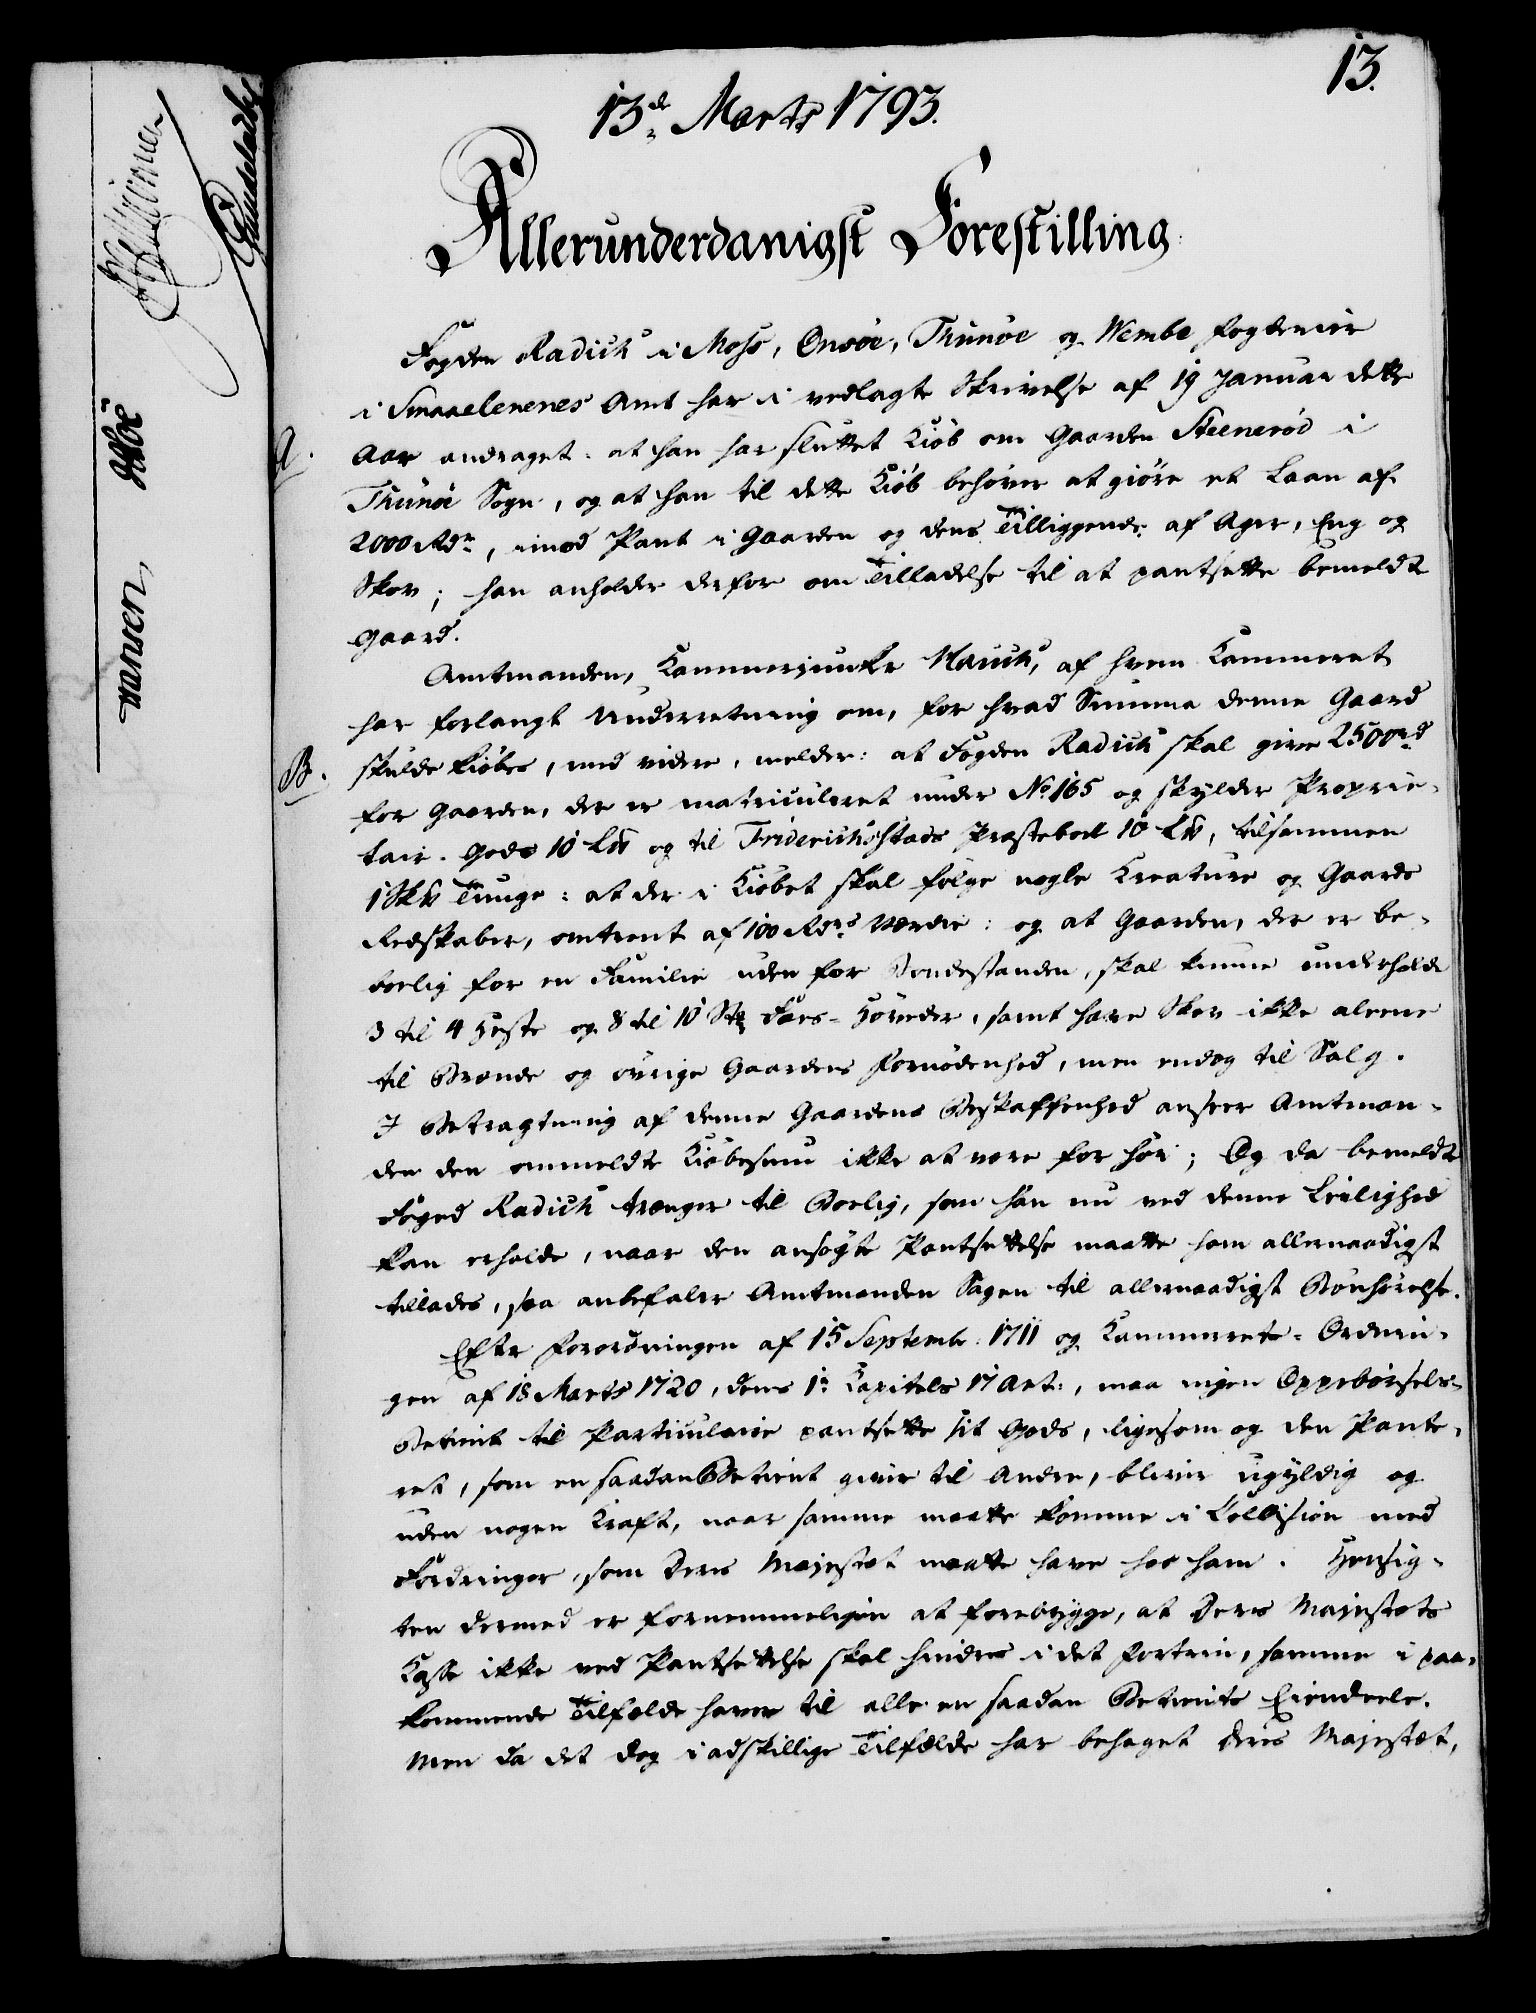 13.
13de Marts 1793.
Allerunderdanigst Forestilling
Fogden Radich i Moss, Onsöe, Thunöe og Wembe Fogderier
i Smaaelenenes Amt har i vedlagte Skrivelse af 19 Januar dette
A. Aar andraget: at han har sluttet Kiöb om Gaarden Steeneröd i
Thunöe Sogn, og at han til dette Kiöb behöver at giöre et Laan af
2000 Rdr, imod Pant i Gaarden og dens Tilliggende af Ager, Eng og
Skov; han anholder derfor om Tilladelse til at pantsette bemeldte
Gaard.
Amtmanden, Kammerjunker Mauch, af hvem Kammeret
har forlangt Underretning om, for hvad Summa denne Gaard
B. skulde kiöbes, med videre, melder: at Fogden Radich skal give 2500rd
for Gaarden, der er matriculeret under No 165 og skylder Proprie-
tair-Gods 10 L℔ og til Friderichsstads Præstebord 10 L℔, tilsammen
1 Sk℔ Tunge: at der i Kiöbet skal fölge nogle Kreature og Gaards
Redskaber, omtrent af 100 Rdrs Værdie: og at Gaarden, der er be-
boelig for en Familie uden for Bondestanden, skal kunne underholde
3 til 4 Heste og 8 til 10 Stk Faes-Höveder, samt have Skov ikke alene
til Brænde og övrige Gaardens Fornödenhed, men endog til Salg.
I Betragtning af denne Gaardens Beskaffenhed anseer Amtman-
den den ommeldte Kiöbesum ikke at være for höi; Og da bemeldte
Foged Radich trænger til Boelig, som han nu ved denne Leilighed
kan erholde, naar den ansögte Pantsettelse maatte ham allernaadigst
tillades, saa anbefaler Amtmanden Sagen til allernaadigst Bönhörelse.
Efter Forordningen af 15 Septembr. 1711 og Kammerets-Ordnin-
gen af 18 Marts 1720, dens 1te Kapitels 17 Art:, maa ingen Oppebörsels-
Betient til Particulaire pantsette sit Gods, ligesom og den Pante-
ret, som en saadan Betient giver til Andre, bliver ugyldig og
uden nogen Kraft, naar samme maatte komme i Collision med
Fordringer, som Deres Majestæt maatte have hos ham. Hensig-
ten dermed er fornemmeligen at forebygge, at Deres Majestæts
Kasse ikke ved Pantsettelse skal hindres i det Fortrin, samme i paa-
kommende Tilfælde haver til alle en saadan Betients Eiendeele.
Men da det dog i adskillige Tilfælde har behaget Deres Majestæt,